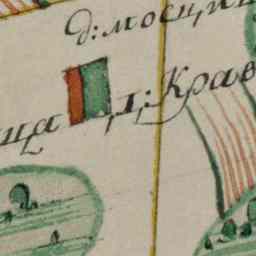 д: мосци
ца д: Крав